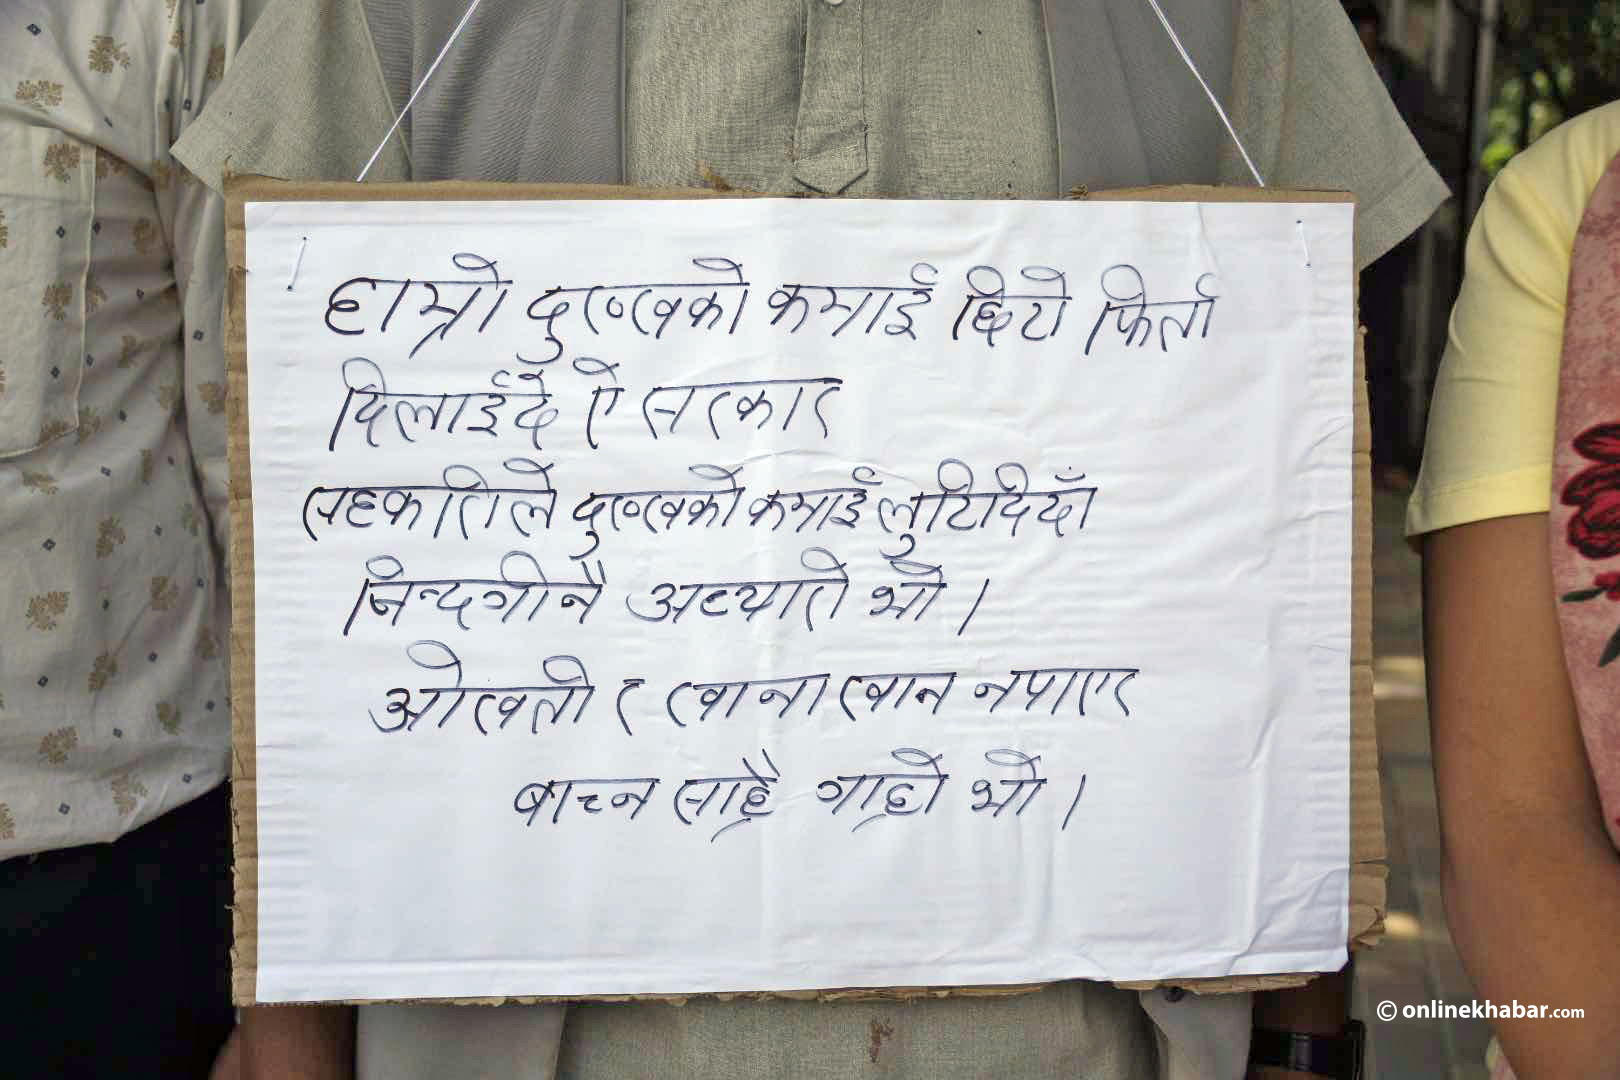 हाम्रो दुःखको कमाई छिटो फिर्ता
दिलाईदे ऐ सरकार
सहकारीले दुःखको कमाई लुटिदिदाँ
जिन्दगीनै अध्यारो भो ।
ओखतो र खाना खान नपाएर
बाच्न साह्रै गाह्रो भो ।
© onlinekhabar.com